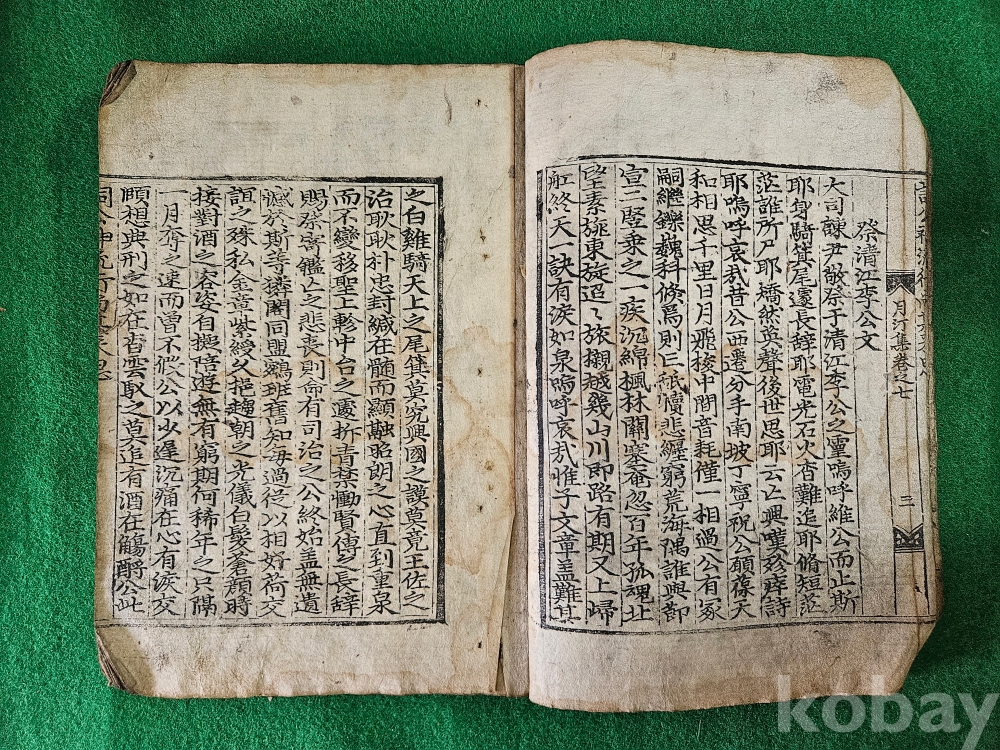 月汀集卷之七
三
祭清江李公文
大司諫尹敬祭于清江李公之靈嗚呼維公而止斯
耶身騎箕尾遽長辭耶電光石火杳難追耶脩短茫
茫誰所尸耶矯然英聲後世思耶云亡興嘆殄瘁詩
耶嗚呼哀哉昔公西遷分手南坡丁寧祝公願葆天
和相思千里日月飛梭中間音耗僅一相過公有冢
嗣繼鑠巍科倏焉則亡紙牘悲纏窮荒海隅誰興節
宣二竪乘之一疾沉綿楓林關塞奄忽百年孤魂北
望素旐東旋迢〻旅櫬越幾山川即路有期又上歸
舡終天一訣有淚如泉嗚呼哀哉惟子文章盖難其
之白雞騎天上之尾箕莫究興國之謨莫竟王佐之
治耿耿朴忠封緘在髓而顯融昭朗之心直到重泉
而不變移聖上軫中台之遽折青禁慟賢傅之長辭
賜祭寄鑑亡之悲喪則命有司治之公終始盖無遺
憾於斯等擠閣同盟鵷班舊知每過從以相好荷交
誼之殊私金章紫綬久挹趨朝之光儀白髮蒼顔時
接對酒之容姿自擬陪遊無有窮期何稀年之只隔
一月奪之速而曾不憗公以少遲沉痛在心有淚交
頤想典刑之如在杳雲馭之莫追有酒在觴酹公此